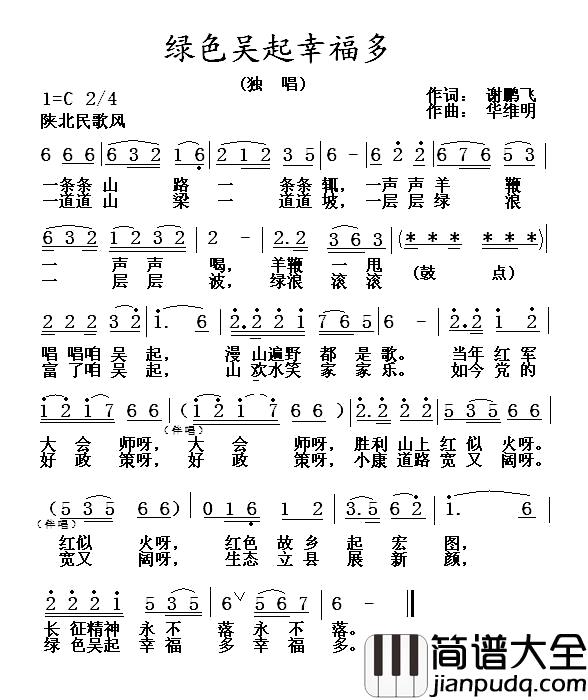 绿色吴起幸福多
(独 唱)
1=C 2/4
作词: 谢鹏飞
陕北民歌风
作曲: 华维明
6 6 6 | 6 3 2 1 6 | 2 1 2 3 5 | 6 - | 6 2 2 | 6 7 6 5 3 |
一条条 山 路 一 条条 辄, 一声 声 羊 鞭
一道道 山 梁 一 道道 坡, 一层 层 绿 浪
6 3 2 | 1 2 3 2 | 2 - | 2. 2 | 3 6 3 | (* * * * * *) |
一 声 声 喝, 羊鞭 一 甩 (鼓 点)
一 层 层 波, 绿浪 滚 滚
2 2 2 2 3 2 | 1. 6 | 2. 2 2 1 | 7 6 5 | 6 - | 2. 2 1 6 |
唱 唱咱 吴 起, 漫 山遍野 都 是 歌。 当年 红 军
富 了咱 吴 起, 山 欢水笑 家 家 乐。 如今 党 的
1 2 1 7 6 6 | (1 2 1 7 6 6) | 2. 2 2 2 | 5 3 5 6 6 |
大 会 师呀, 大 会 师呀, 胜利 山上 红 似 火呀。
(伴唱)
好 政 策呀, 好 政 策呀, 小康 道路 宽 又 阔呀。
(5 3 5 6 6) | 0 1 6 1 2 | 3. 5 6 2 | 1. 6 |
(伴唱)
红似 火呀, 红色 故 乡 起 宏 图,
宽又 阔呀, 生态 立 县 展 新 颜,
2 2 2 1 | 5 3 5 | 6 ∨ 5 6 7 | 6 - ‖
长 征精神 永 不 落 永 不 落。
绿 色吴起 幸 福 多 幸 福 多。
简谱大全
jianpudq.com